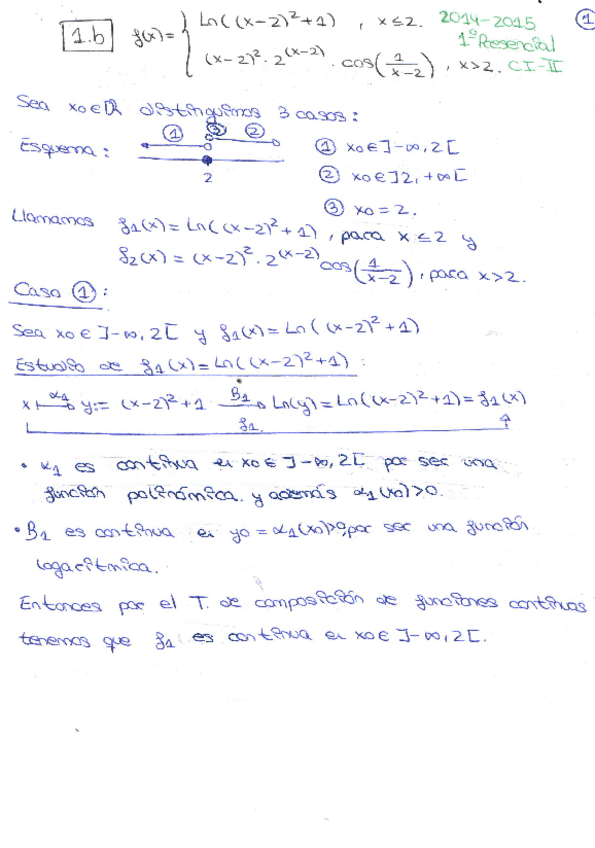 1.b f(x) = { Ln((x-2)²+1) , x≤2. 2014-2015 1
(x-2)²·2^(x-2)·cos(1/(x-2)) , x>2. 1º Presencial CI-II
Sea xo∈ℝ distinguimos 3 casos:
Esquema: 1 3 2 2
1 xo∈]-∞,2[
2 xo∈]2,+∞[
3 xo=2.
Llamamos f1(x)=Ln((x-2)²+1), para x≤2 y
f2(x)=(x-2)²·2^(x-2) cos(1/(x-2)), para x>2.
Caso 1:
Sea xo∈]-∞,2[ y f1(x)=Ln((x-2)²+1)
Estudio de f1(x)=Ln((x-2)²+1):
x α1 y:=(x-2)²+1 B1 Ln(y)=Ln((x-2)²+1)=f1(x)
f1
• α1 es continua en xo∈]-∞,2[ por ser una
función polinómica. y además α1(xo)>0.
• B1 es continua en yo=α1(xo)>0, por ser una función
logarítmica.
Entonces por el T. de composición de funciones continuas
tenemos que f1 es continua en xo∈]-∞,2[.